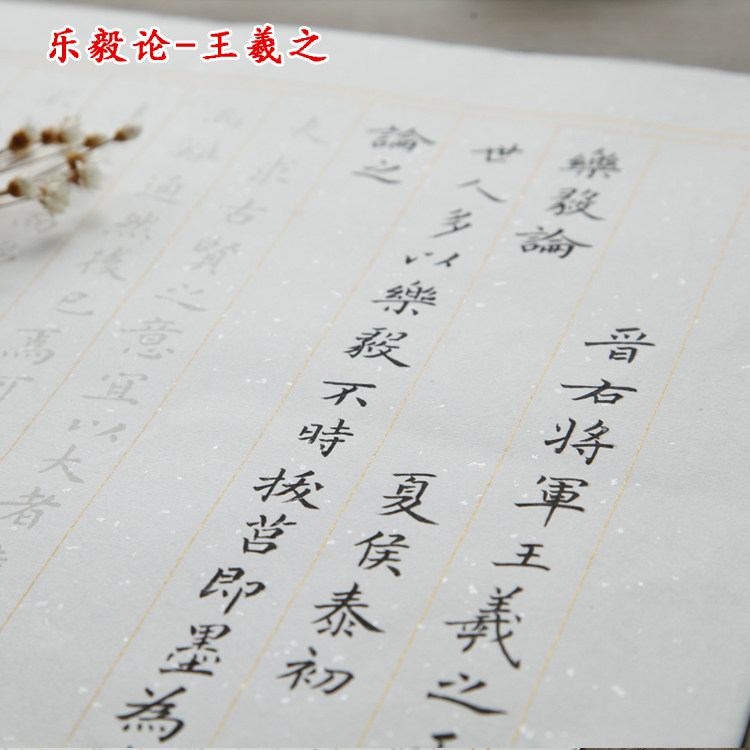 乐毅论-王羲之
晋右將軍王羲之
樂毅論 夏侯泰初
世人多以樂毅不時拔莒即墨為
論之
夫求古賢之意宜以大者
難通然後已焉可